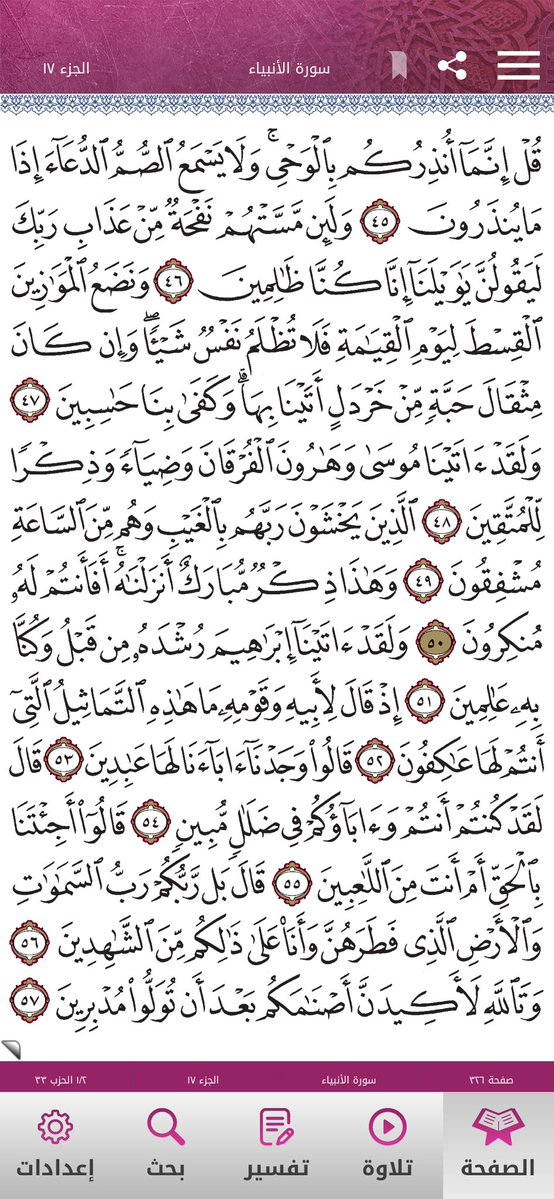 الجزء ١٧ سورة الأنبياء
قُلْ إِنَّمَآ أُنذِرُكُم بِٱلْوَحْىِۚ وَلَا يَسْمَعُ ٱلصُّمُّ ٱلدُّعَآءَ إِذَا
مَا يُنذَرُونَ ٤٥ وَلَئِن مَّسَّتْهُمْ نَفْحَةٌ مِّنْ عَذَابِ رَبِّكَ
لَيَقُولُنَّ يَٰوَيْلَنَآ إِنَّا كُنَّا ظَٰلِمِينَ ٤٦ وَنَضَعُ ٱلْمَوَٰزِينَ
ٱلْقِسْطَ لِيَوْمِ ٱلْقِيَٰمَةِ فَلَا تُظْلَمُ نَفْسٌ شَيْـًٔاۖ وَإِن كَانَ
مِثْقَالَ حَبَّةٍ مِّنْ خَرْدَلٍ أَتَيْنَا بِهَاۗ وَكَفَىٰ بِنَا حَٰسِبِينَ ٤٧
وَلَقَدْ ءَاتَيْنَا مُوسَىٰ وَهَٰرُونَ ٱلْفُرْقَانَ وَضِيَآءً وَذِكْرًا
لِّلْمُتَّقِينَ ٤٨ ٱلَّذِينَ يَخْشَوْنَ رَبَّهُم بِٱلْغَيْبِ وَهُم مِّنَ ٱلسَّاعَةِ
مُشْفِقُونَ ٤٩ وَهَٰذَا ذِكْرٌ مُّبَارَكٌ أَنزَلْنَٰهُۚ أَفَأَنتُمْ لَهُۥ
مُنكِرُونَ ٥٠ وَلَقَدْ ءَاتَيْنَآ إِبْرَٰهِيمَ رُشْدَهُۥ مِن قَبْلُ وَكُنَّا
بِهِۦ عَٰلِمِينَ ٥١ إِذْ قَالَ لِأَبِيهِ وَقَوْمِهِۦ مَا هَٰذِهِ ٱلتَّمَاثِيلُ ٱلَّتِىٓ
أَنتُمْ لَهَا عَٰكِفُونَ ٥٢ قَالُوا۟ وَجَدْنَآ ءَابَآءَنَا لَهَا عَٰبِدِينَ ٥٣ قَالَ
لَقَدْ كُنتُمْ أَنتُمْ وَءَابَآؤُكُمْ فِى ضَلَٰلٍ مُّبِينٍ ٥٤ قَالُوٓا۟ أَجِئْتَنَا
بِٱلْحَقِّ أَمْ أَنتَ مِنَ ٱللَّٰعِبِينَ ٥٥ قَالَ بَل رَّبُّكُمْ رَبُّ ٱلسَّمَٰوَٰتِ
وَٱلْأَرْضِ ٱلَّذِى فَطَرَهُنَّ وَأَنَا۠ عَلَىٰ ذَٰلِكُم مِّنَ ٱلشَّٰهِدِينَ ٥٦
وَتَٱللَّهِ لَأَكِيدَنَّ أَصْنَٰمَكُم بَعْدَ أَن تُوَلُّوا۟ مُدْبِرِينَ ٥٧
صفحة ٣٢٦ سورة الأنبياء الجزء ١٧ ١/٢ الحزب ٣٣
الصفحة تلاوة تفسير بحث إعدادات